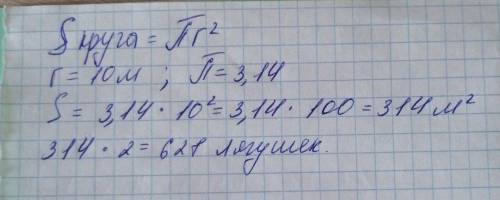 S круга = Пr²
r = 10м ; П = 3,14
S = 3,14 · 10² = 3,14 · 100 = 314 м²
314 · 2 = 628 лягушек.